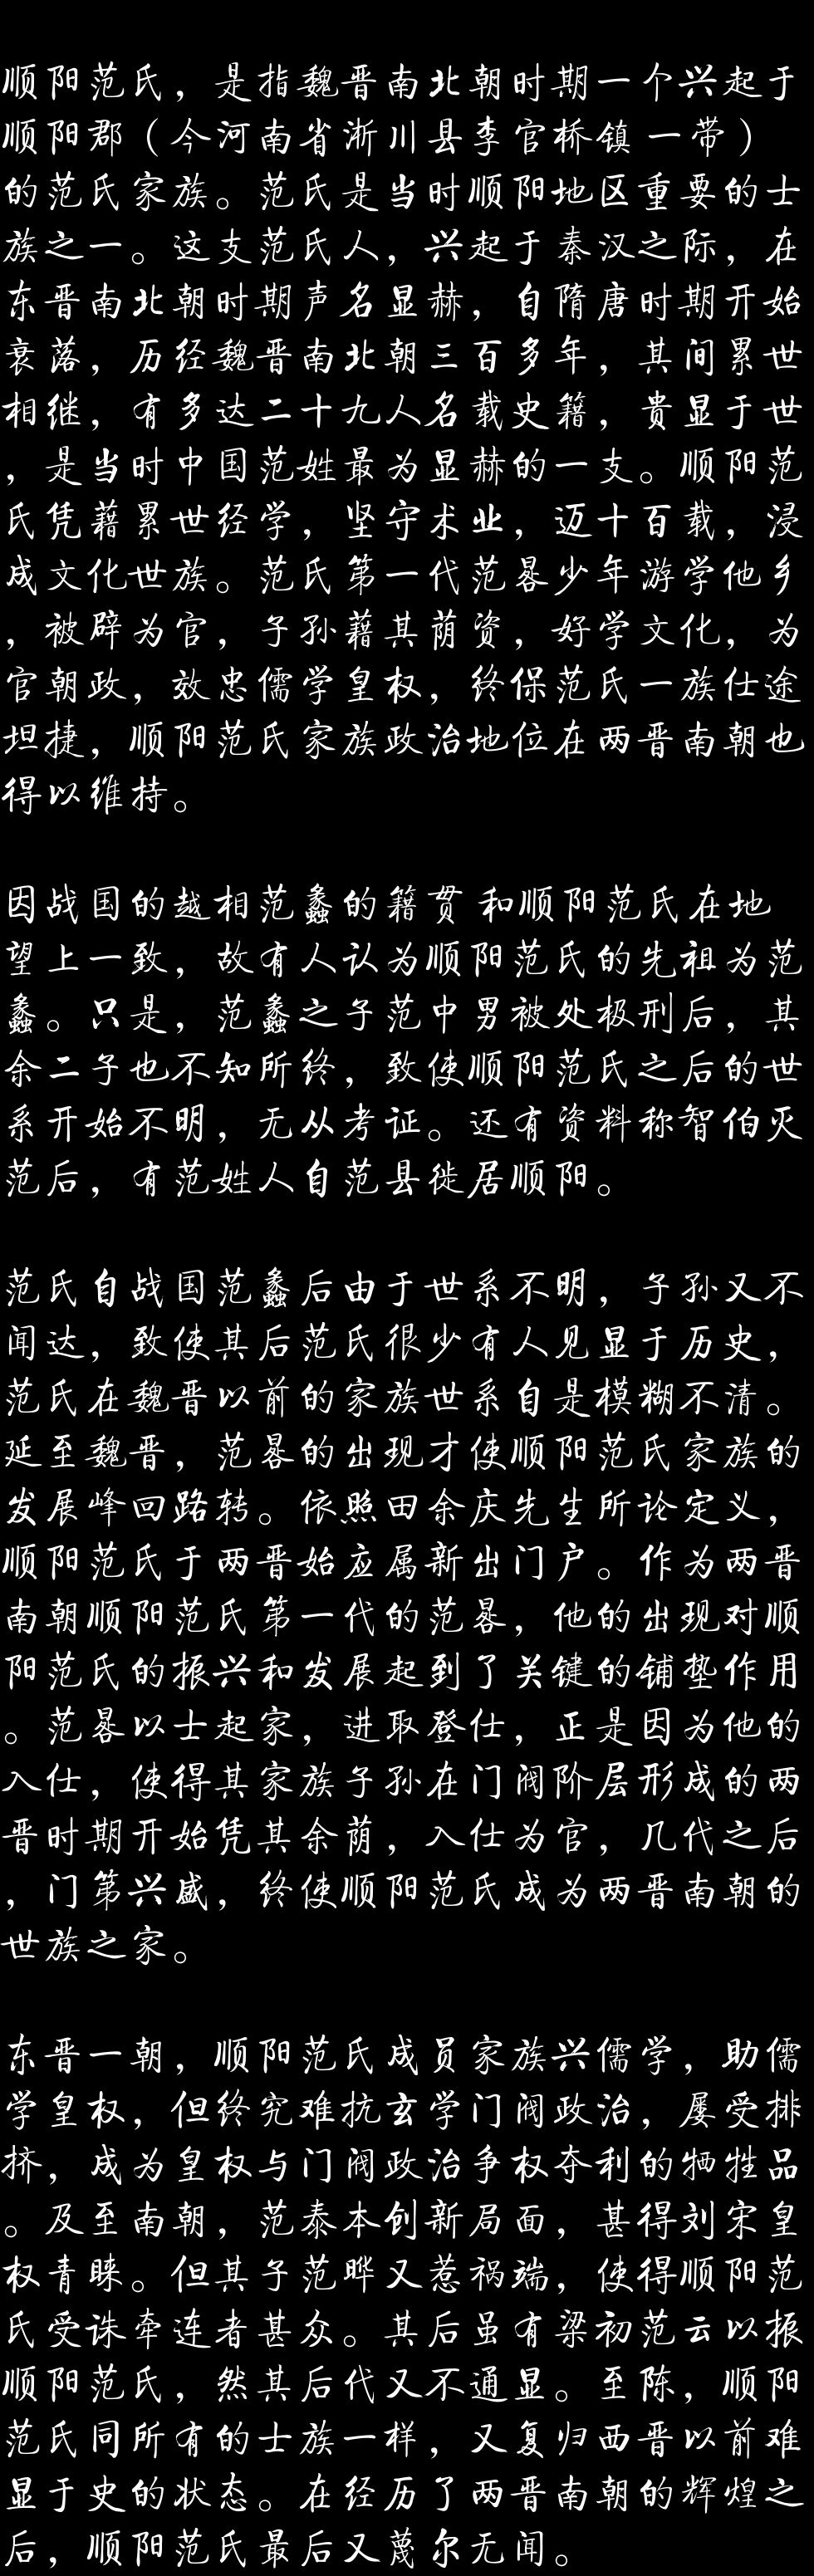 顺阳范氏，是指魏晋南北朝时期一个兴起于
顺阳郡（今河南省淅川县李官桥镇一带）
的范氏家族。范氏是当时顺阳地区重要的士
族之一。这支范氏人，兴起于秦汉之际，在
东晋南北朝时期声名显赫，自隋唐时期开始
衰落，历经魏晋南北朝三百多年，其间累世
相继，有多达二十九人名载史籍，贵显于世
，是当时中国范姓最为显赫的一支。顺阳范
氏凭藉累世经学，坚守术业，迈十百载，浸
成文化世族。范氏第一代范晷少年游学他乡
，被辟为官，子孙藉其荫资，好学文化，为
官朝政，效忠儒学皇权，终保范氏一族仕途
坦捷，顺阳范氏家族政治地位在两晋南朝也
得以维持。
因战国的越相范蠡的籍贯和顺阳范氏在地
望上一致，故有人认为顺阳范氏的先祖为范
蠡。只是，范蠡之子范中男被处极刑后，其
余二子也不知所终，致使顺阳范氏之后的世
系开始不明，无从考证。还有资料称智伯灭
范后，有范姓人自范县徙居顺阳。
范氏自战国范蠡后由于世系不明，子孙又不
闻达，致使其后范氏很少有人见显于历史，
范氏在魏晋以前的家族世系自是模糊不清。
延至魏晋，范晷的出现才使顺阳范氏家族的
发展峰回路转。依照田余庆先生所论定义，
顺阳范氏于两晋始应属新出门户。作为两晋
南朝顺阳范氏第一代的范晷，他的出现对顺
阳范氏的振兴和发展起到了关键的铺垫作用
。范晷以士起家，进取登仕，正是因为他的
入仕，使得其家族子孙在门阀阶层形成的两
晋时期开始凭其余荫，入仕为官，几代之后
，门第兴盛，终使顺阳范氏成为两晋南朝的
世族之家。
东晋一朝，顺阳范氏成员家族兴儒学，助儒
学皇权，但终究难抗玄学门阀政治，屡受排
挤，成为皇权与门阀政治争权夺利的牺牲品
。及至南朝，范泰本创新局面，甚得刘宋皇
权青睐。但其子范晔又惹祸端，使得顺阳范
氏受诛牵连者甚众。其后虽有梁初范云以振
顺阳范氏，然其后代又不通显。至陈，顺阳
范氏同所有的士族一样，又复归西晋以前难
显于史的状态。在经历了两晋南朝的辉煌之
后，顺阳范氏最后又蔑尔无闻。